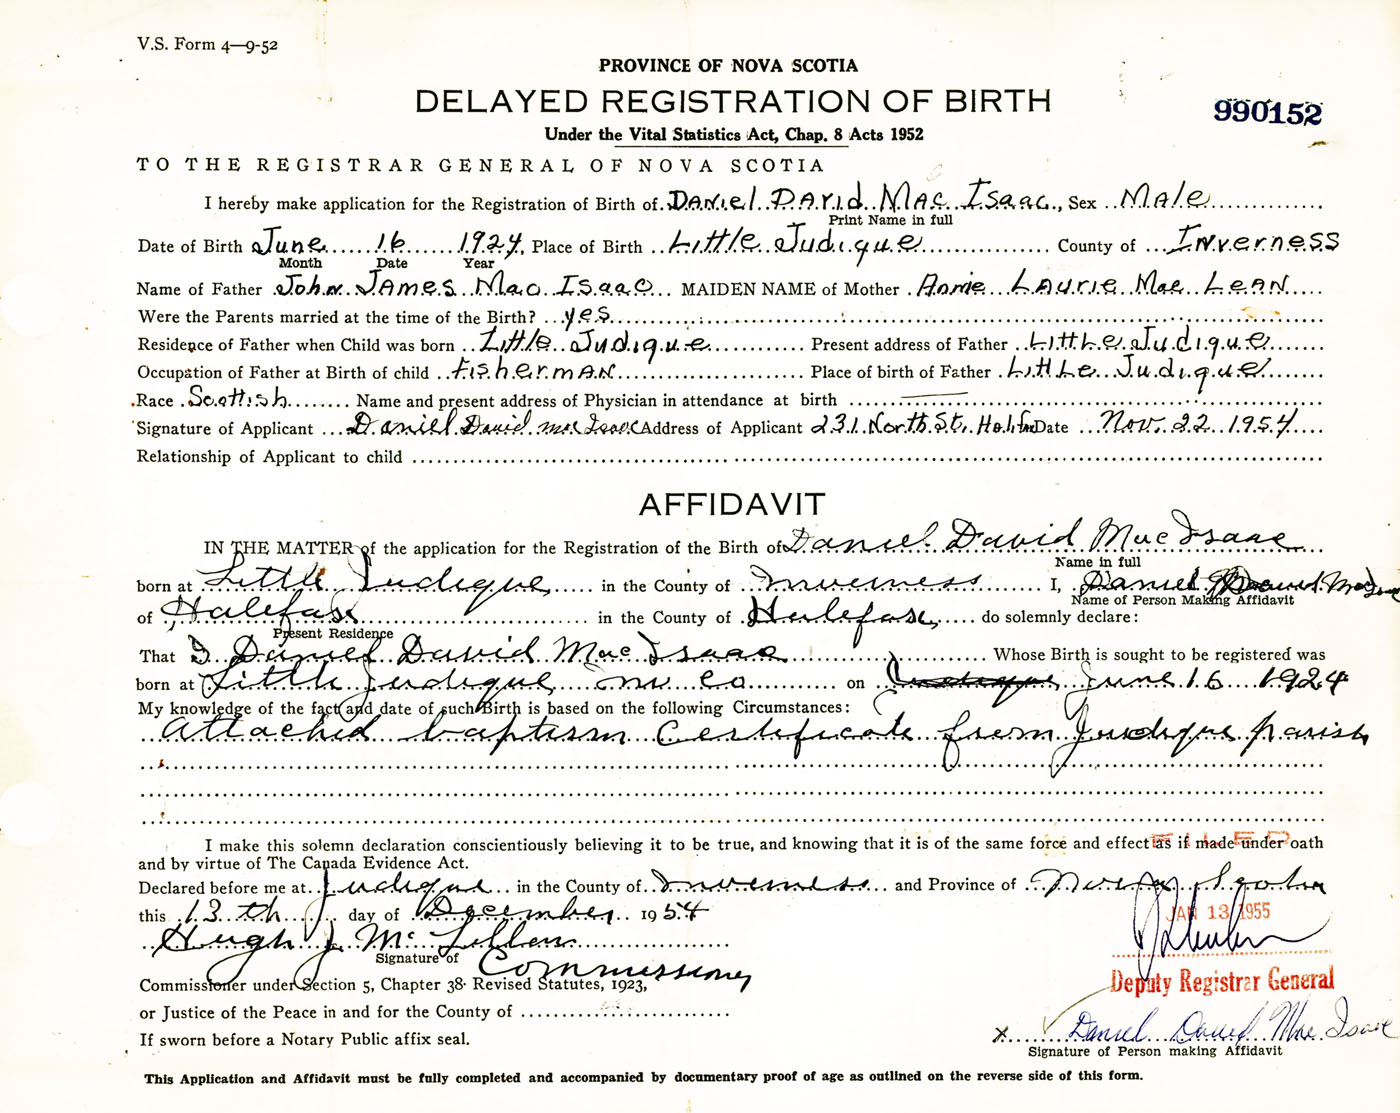 V.S. Form 4—9-52
PROVINCE OF NOVA SCOTIA
DELAYED REGISTRATION OF BIRTH
990152
Under the Vital Statistics Act, Chap. 8 Acts 1952
TO THE REGISTRAR GENERAL OF NOVA SCOTIA
I hereby make application for the Registration of Birth of Daniel David Mac Isaac, Sex Male
Print Name in full
Date of Birth June 16 1924, Place of Birth Little Judique County of Inverness
Month Date Year
Name of Father John James Mac Isaac MAIDEN NAME of Mother Annie Laurie Mac Lean
Were the Parents married at the time of the Birth? yes
Residence of Father when Child was born Little Judique Present address of Father Little Judique
Occupation of Father at Birth of child Fisherman Place of birth of Father Little Judique
Race Scottish Name and present address of Physician in attendance at birth
Signature of Applicant Daniel David Mac Isaac Address of Applicant 231 North St. Halifax Date Nov. 22 1954
Relationship of Applicant to child
AFFIDAVIT
IN THE MATTER of the application for the Registration of the Birth of Daniel David Mac Isaac
Name in full
born at Little Judique in the County of Inverness I, Daniel David Mac Isaac
Name of Person Making Affidavit
of Halifax in the County of Halifax do solemnly declare:
Present Residence
That I Daniel David Mac Isaac Whose Birth is sought to be registered was
born at Little Judique Inv Co on June 16 1924
My knowledge of the fact and date of such Birth is based on the following Circumstances:
Attached baptism Certificate from Judique parish
I make this solemn declaration conscientiously believing it to be true, and knowing that it is of the same force and effect as if made under oath
FILED
and by virtue of The Canada Evidence Act.
Declared before me at Judique in the County of Inverness and Province of Nova Scotia
this 13th day of December 1954
JAN 13 1955
Hugh J. McLellan
Signature of Commissioner
Deputy Registrar General
Commissioner under Section 5, Chapter 38 Revised Statutes, 1923,
or Justice of the Peace in and for the County of
x Daniel David Mac Isaac
If sworn before a Notary Public affix seal.
Signature of Person making Affidavit
This Application and Affidavit must be fully completed and accompanied by documentary proof of age as outlined on the reverse side of this form.